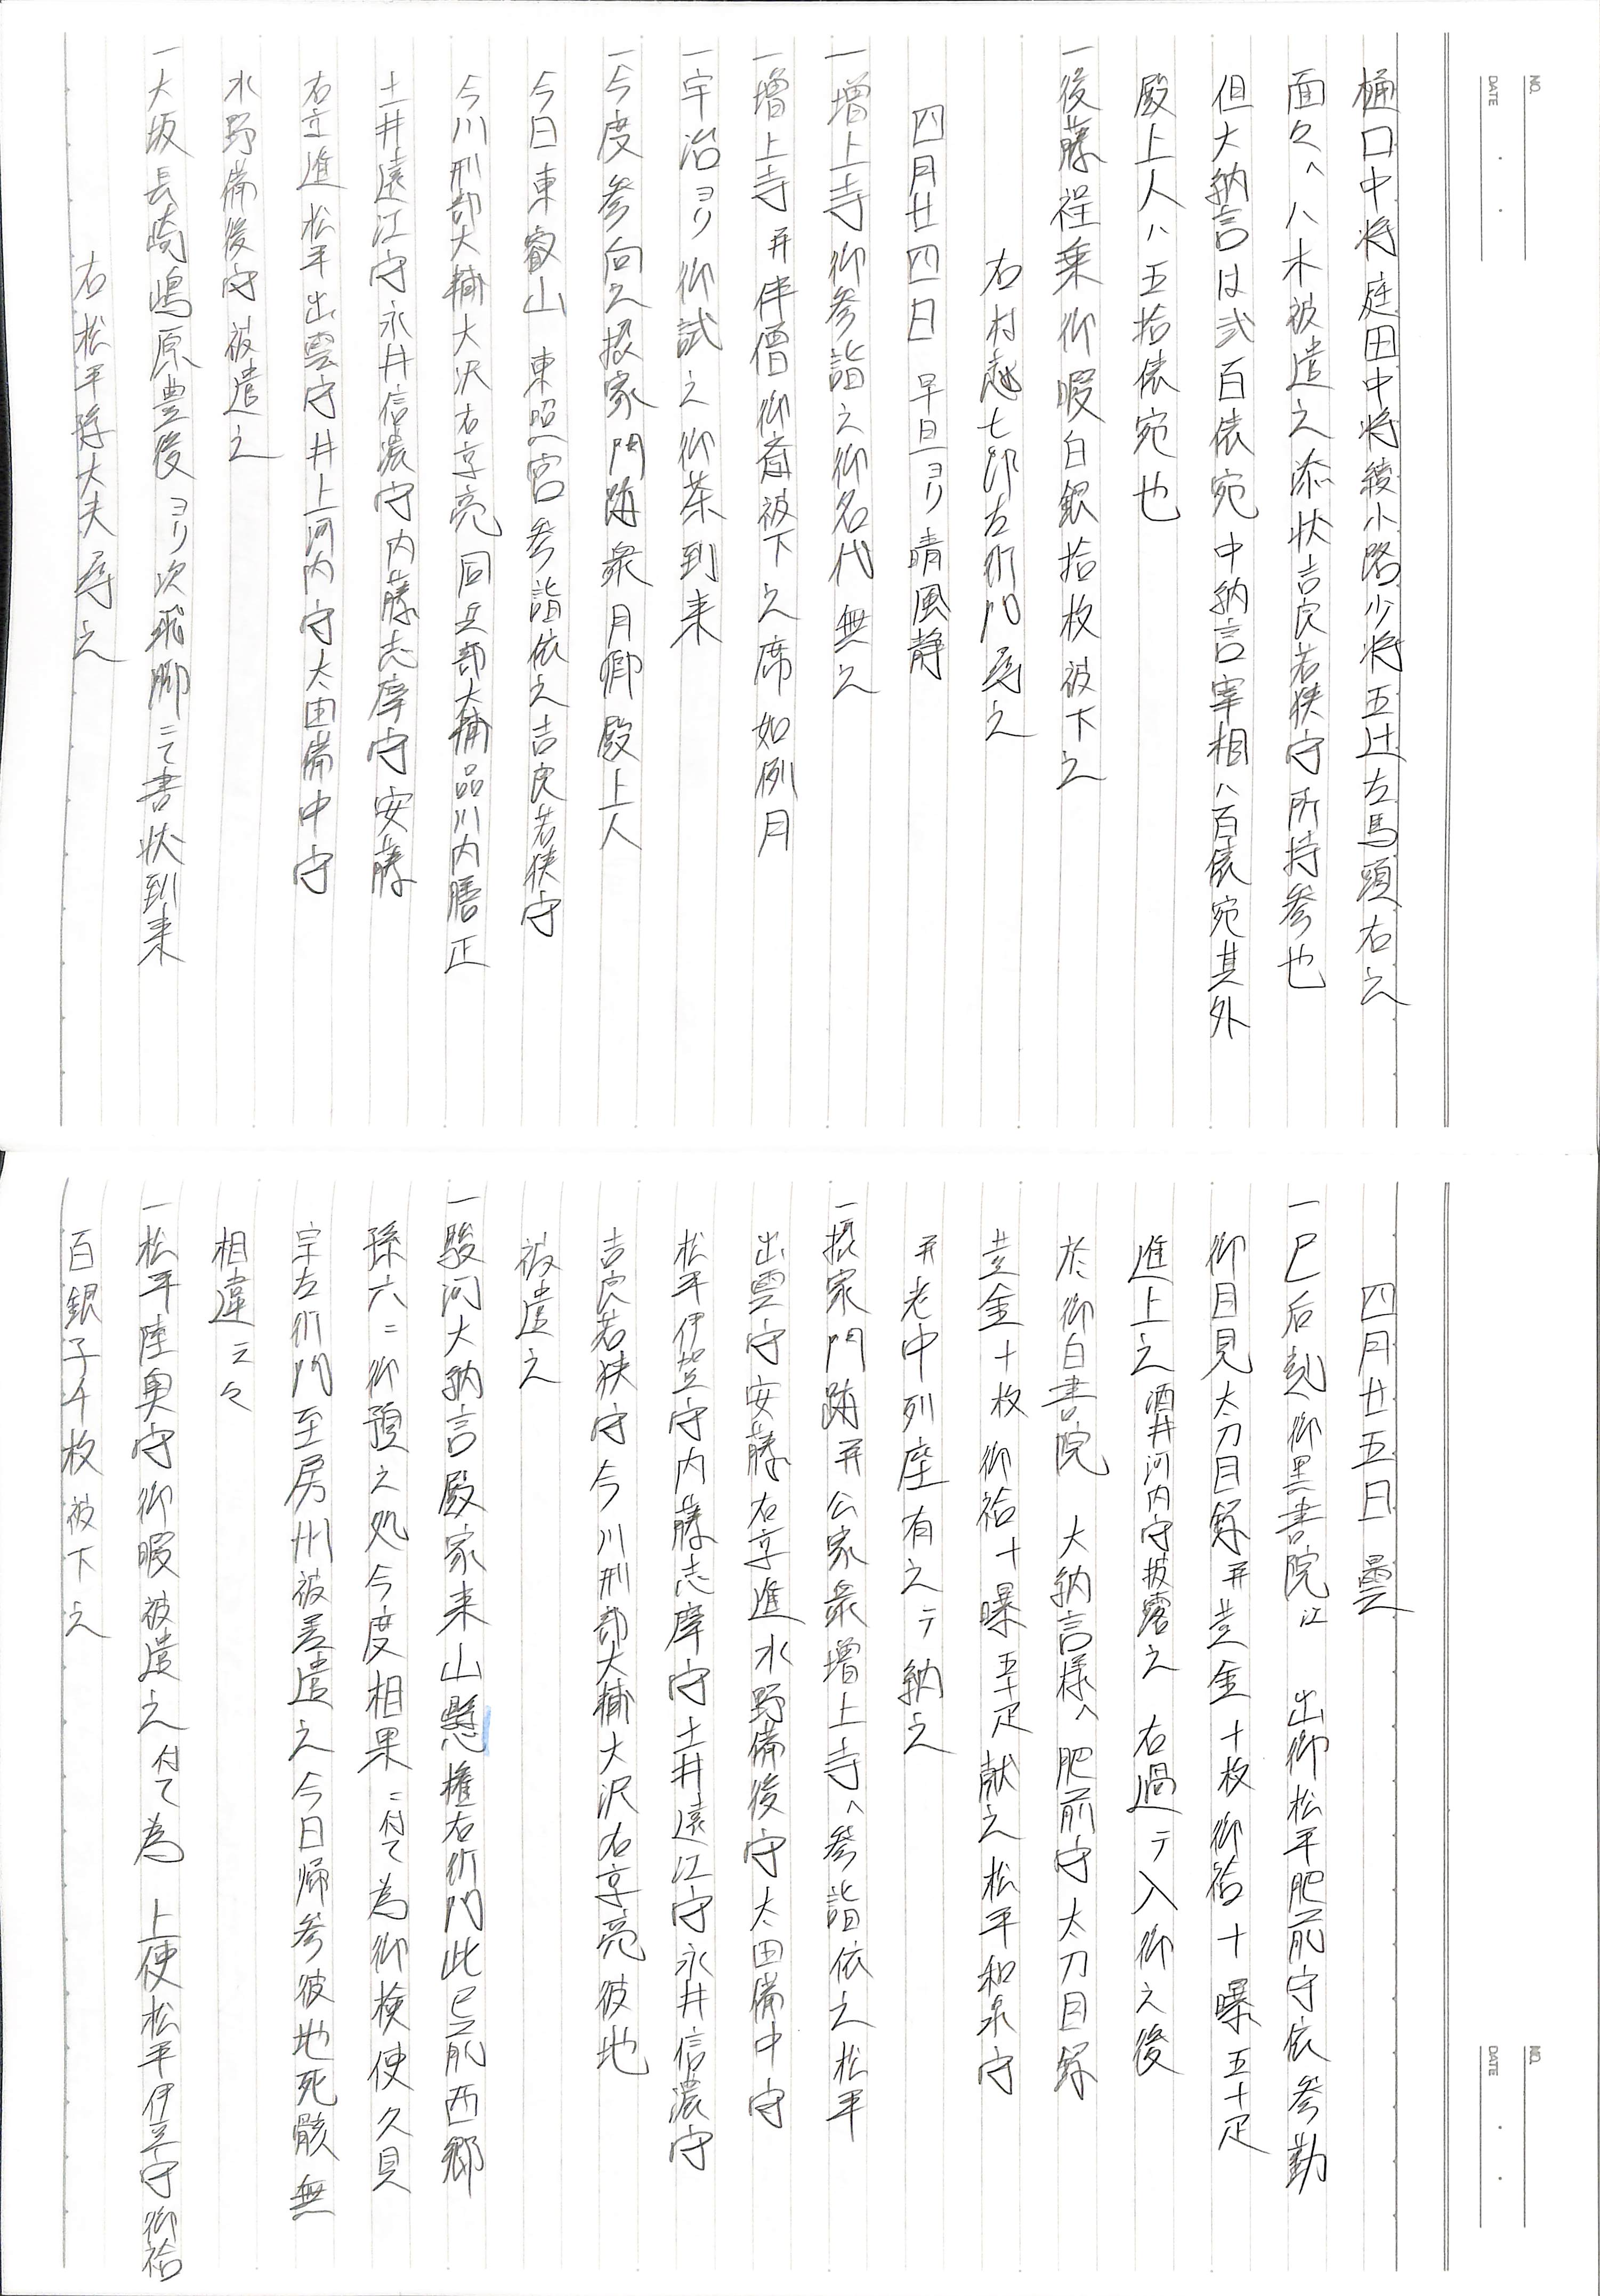 NO.
DATE
樋口中将庭田中将綾小路少将五辻左馬頭右之
面々ヘハ八木被遣之添状吉良若狭守所持参也
但大納言は弐百俵宛中納言宰相ハ百俵宛其外
殿上人ハ五拾俵宛也
一後藤程乗御暇白銀拾枚被下之
右村越七郎左衛門 尋之
四月廿四日 早旦ヨリ晴風静
一増上寺御参詣之御名代無之
一増上寺并伴僧御斎被下之席如例月
一宇治ヨリ御試之御茶到来
一今度参向之摂家門跡衆月卿殿上人
今日東叡山 東照宮参詣依之吉良若狭守
今川刑部大輔大沢右京亮同兵部大輔品川内膳正
土井遠江守永井信濃守内藤志摩守安藤
右京進松平出雲守井上河内守太田備中守
水野備後守被遣之
一大坂長崎嶋原豊後ヨリ次飛脚ニて書状到来
右松平隼大夫尋之
NO.
DATE
四月廿五日 曇
一巳后刻御黒書院江 出御松平肥前守依参勤
御目見太刀目録并黄金十枚御袷十曝五十疋
進上之酒井河内守披露之 右過テ入御之後
於御白書院 大納言様ヘ肥前守太刀目録
黄金十枚御袷十曝五十疋献之松平和泉守
并老中列座有之テ納之
一摂家門跡并公家衆増上寺ヘ参詣依之松平
出雲守安藤右京進水野備後守太田備中守
松平伊賀守内藤志摩守土井遠江守永井信濃守
吉良若狭守今川刑部大輔大沢右京亮彼地
被遣之
一駿河大納言殿家来山懸権右衛門此已前西郷
孫六ニ御預之処今度相果ニ付て為御検使久貝
宇左衛門至房州被差遣之今日帰参彼地死骸無
相違云々
一松平陸奥守御暇被遣之付て為 上使松平伊豆守御袷
百銀子千枚被下之